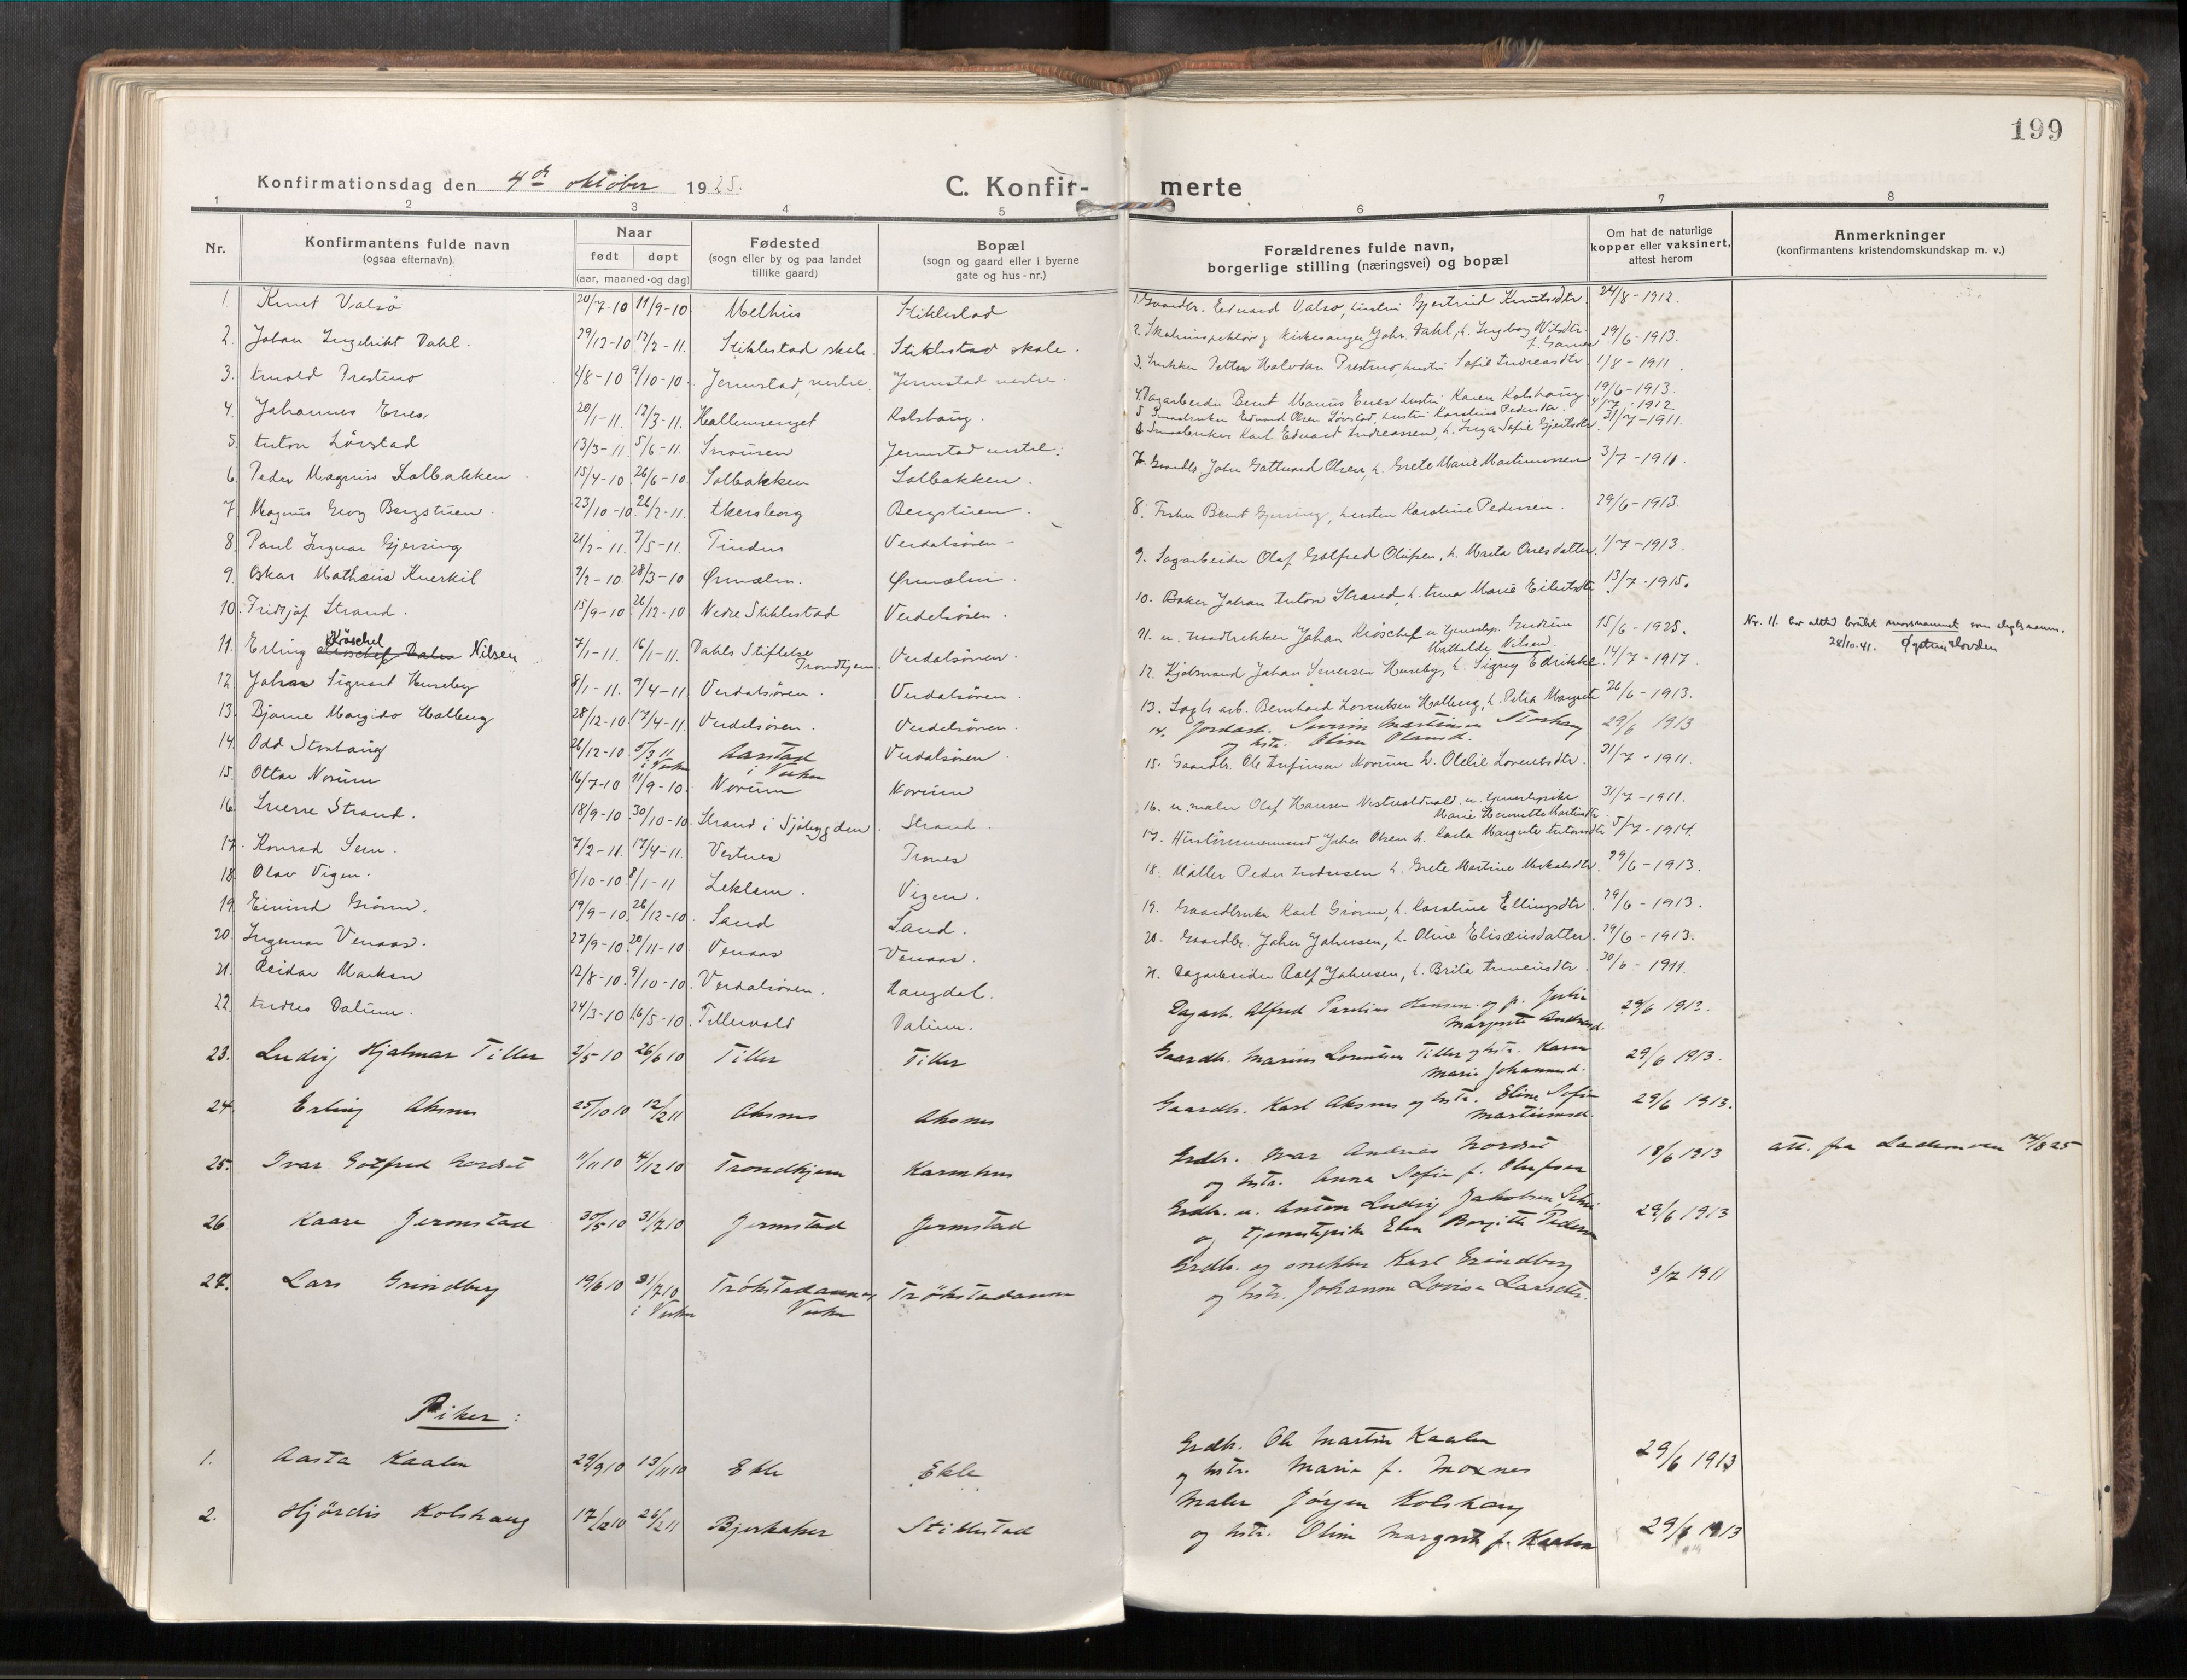 199
Konfirmationsdag den 4de oktober 1925.
C. Konfir- merte
1 2 3 4 5 6 7 8
Nr.
Konfirmantens fulde navn
(ogsaa efternavn)
Naar
født døpt
(aar, maaned og dag)
Fødested
(sogn eller by og paa landet
tillike gaard)
Bopæl
(sogn og gaard eller i byerne
gate og hus-nr.)
Forældrenes fulde navn,
borgerlige stilling (næringsvei) og bopæl
Om hat de naturlige
kopper eller vaksinert,
attest herom
Anmerkninger
(konfirmantens kristendomskundskap m. v.)
1 Knut Valsö 20/7-10 11/9-10 Melhus Stiklestad 1 Gaardbr. Edvard Valsö, hustru Gjertrud Knutsdtr. 24/8-1912.
2. Johan Ingebrikt Dahl. 29/12-10 12/2-11. Stiklestad skole. Stiklestad skole. 2. Skoleinspektör og kirkesanger Johs. Dahl, h. Ingeborg Nilsdtr. 29/6-1913.
3. Arnold Prestmo 4/8-10 9/10-10. Jermstad vestre. Jermstad vestre. 3. Snekker Petter Halvdan Prestmo, hustru Sofie Andreasdtr. 1/8-1911.
4. Johannes Enes. 20/1-11. 12/3-11. Hallemsenget Kolshaug. 4. Dagarbeider Bernt Marius Enes hustru Karen Kolshaug 19/6-1913.
5. Anton Lörstad 13/3-11. 5/6-11. Snausen Jermstad vestre. 5. Edvard Olsen Lörstad, hustru Karoline Pedersdtr. 4/7-1912
6. Peder Magnus Solbakken 15/4-10. 26/6-10. Solbakken Solbakken. 6. Smaabruker Karl Edvard Andreassen, h. Inga Sofie Gjertsdtr. 31/7-1911.
7. Magnus Georg Bergstuen. 23/10-10. 26/2-11. Akersborg Bergstuen. 7. Gaardbr. Johan Gotthard Olsen, h. Grete Marie Martinussen 3/7-1911.
8. Paul Ingvar Gjersing 21/2-11. 7/5-11. Tindus Verdalsören 8. Fisker Bernt Gjersing, hustru Karoline Pedersen. 29/6-1913.
9. Oskar Mathæus Kverkil 9/2-10. 28/3-10 Ørmælen. Ørmælen. 9. Sagarbeider Olaf Gotfred Olufsen, h. Marta Onesdatter. 1/7-1913.
10. Fridtjof Strand. 15/9-10. 26/12-10. Nedre Stiklestad Verdalsören. 10. Baker Johan Anton Strand, h. Anna Marie Eilertsdtr. 13/7-1915.
11. Erling Kröschel Dalen Nilsen 7/1-11. 16/1-11. Dahls Stiftelse Trondhjem. Verdalsören. 11. u. vandtrekker Johan Kröschel u. tjenestep. Gudrun Mathilde Nilsen 15/6-1925. Nr. 11. har altid brukt morsnavnet som slegtsnavn.
28/10.41. Øystein Hovden
12. Johan Sigurd Huseby 8/1-11. 9/4-11. Verdalsören. Verdalsören. 12. Kjölmand Johan Seversen Huseby, h. Signy Edrikke. 14/7-1917.
13. Bjarne Margido Halberg 28/12-10 17/4-11. Verdalsören. Verdalsören. 13. Sagb. arb. Bernhard Lorentsen Halberg, h. Petra Margrete 26/6-1913.
14. Odd Storhaug 26/12-10 5/3 11 i Vuku Aarstad i Vuku Verdalsören. 14. Jordarb. Severin Martinsen Storhaug og hstr. Olina Olausd. 29/6 1913
15. Ottar Norum 16/7-10 11/9-10. Norum Norum 15. Gaardbr. Ole Arfinsen Norum h. Otelie Lorentsdtr. 31/7-1911.
16. Sverre Strand. 18/9-10. 30/10-10. Strand i Sjöbygden. Strand. 16. u. maler Olaf Hansen u. tjenestepike Marie Henriette Martinsdtr. 31/7-1911.
17. Konrad Sem. 7/2-11. 17/4-11. Vestnes Trones 17. Hustömmermand Johan Olsen h. Karla Margrete Antonsdtr. 5/7-1914.
18. Olav Vigen. 8/10-10 8/1-11 Leklem. Vigen. 18. Möller Peder Andresen h. Grete Martine Mikalsdtr. 29/6-1913.
19. Eivind Grönn. 19/9-10. 26/12-10. Sand Sand. 19. Gaardbruker Karl Grönn, h. Karoline Ellingsdtr. 29/6-1913.
20. Ingemar Venaas. 27/9-10. 20/11-10. Venaas Venaas. 20. Gaardbr. Johan Johnsen, h. Oline Elisæusdatter. 29/6-1913.
21. Reidar Marken 12/8-10. 9/10-10. Verdalsören. Haugdal. 21. Dagarbeider Rolf Johnsen, h. Brita 30/6-1911.
22. Andres Dalum. 24/3-10 16/5-10. Tillervald Dalum. Dagarb. Alfred Paulius Hansen og p. Julie Margrete Andreasd. 29/6 1912.
23. Ludvig Hjalmar Tiller 2/5-10 26/6 10 Tiller Tiller Gaardb. Marius Lorentsen Tiller og hstr. Karen Marie Johannesd. 29/6 1913.
24. Erling Aksnes 25/10 10 12/2 11 Aksnes Aksnes Gaardb. Karl Aksnes og hstr. Eline Sofie Martinusd. 29/6 1913.
25. Ivar Gotfred Nordset 11/11 10 4/12 10 Trondhjem Karmhus Grdbr. Ivar Andreas Nordset og hstr. Anna Sofie f. Olufsen 18/6 1913 att. fra Lademoen 14/8 25
26 Kaare Jermstad 30/5 10 31/7 10 Jermstad Jermstad Grdbr. u. Anton Ludvig Jakobsen og tjenestepike Elen Bergitte Pedersen 29/6 1913
27. Lars Grindberg 19/6 10 31/7 10 i Vuku Trökstadaunet Vuku Trökstadaunet Grdbr. og snekker Karl Grindberg og hstr. Johanna Lovise Larsdtr. 3/7 1911
Piker:
1. Aasta Kaalen 29/9 10 13/11 10 Ekle Ekle Grdb. Ole Martin Kaalen og hstr. Marie f. Moxnes 29/6 1913
2. Hjördis Kolshaug 17/12 10 26/2 11 Bjerkaker Stiklestad Maler Jörgen Kolshaug og hstr. Oline Margrete f. Kaalen 29/6 1913